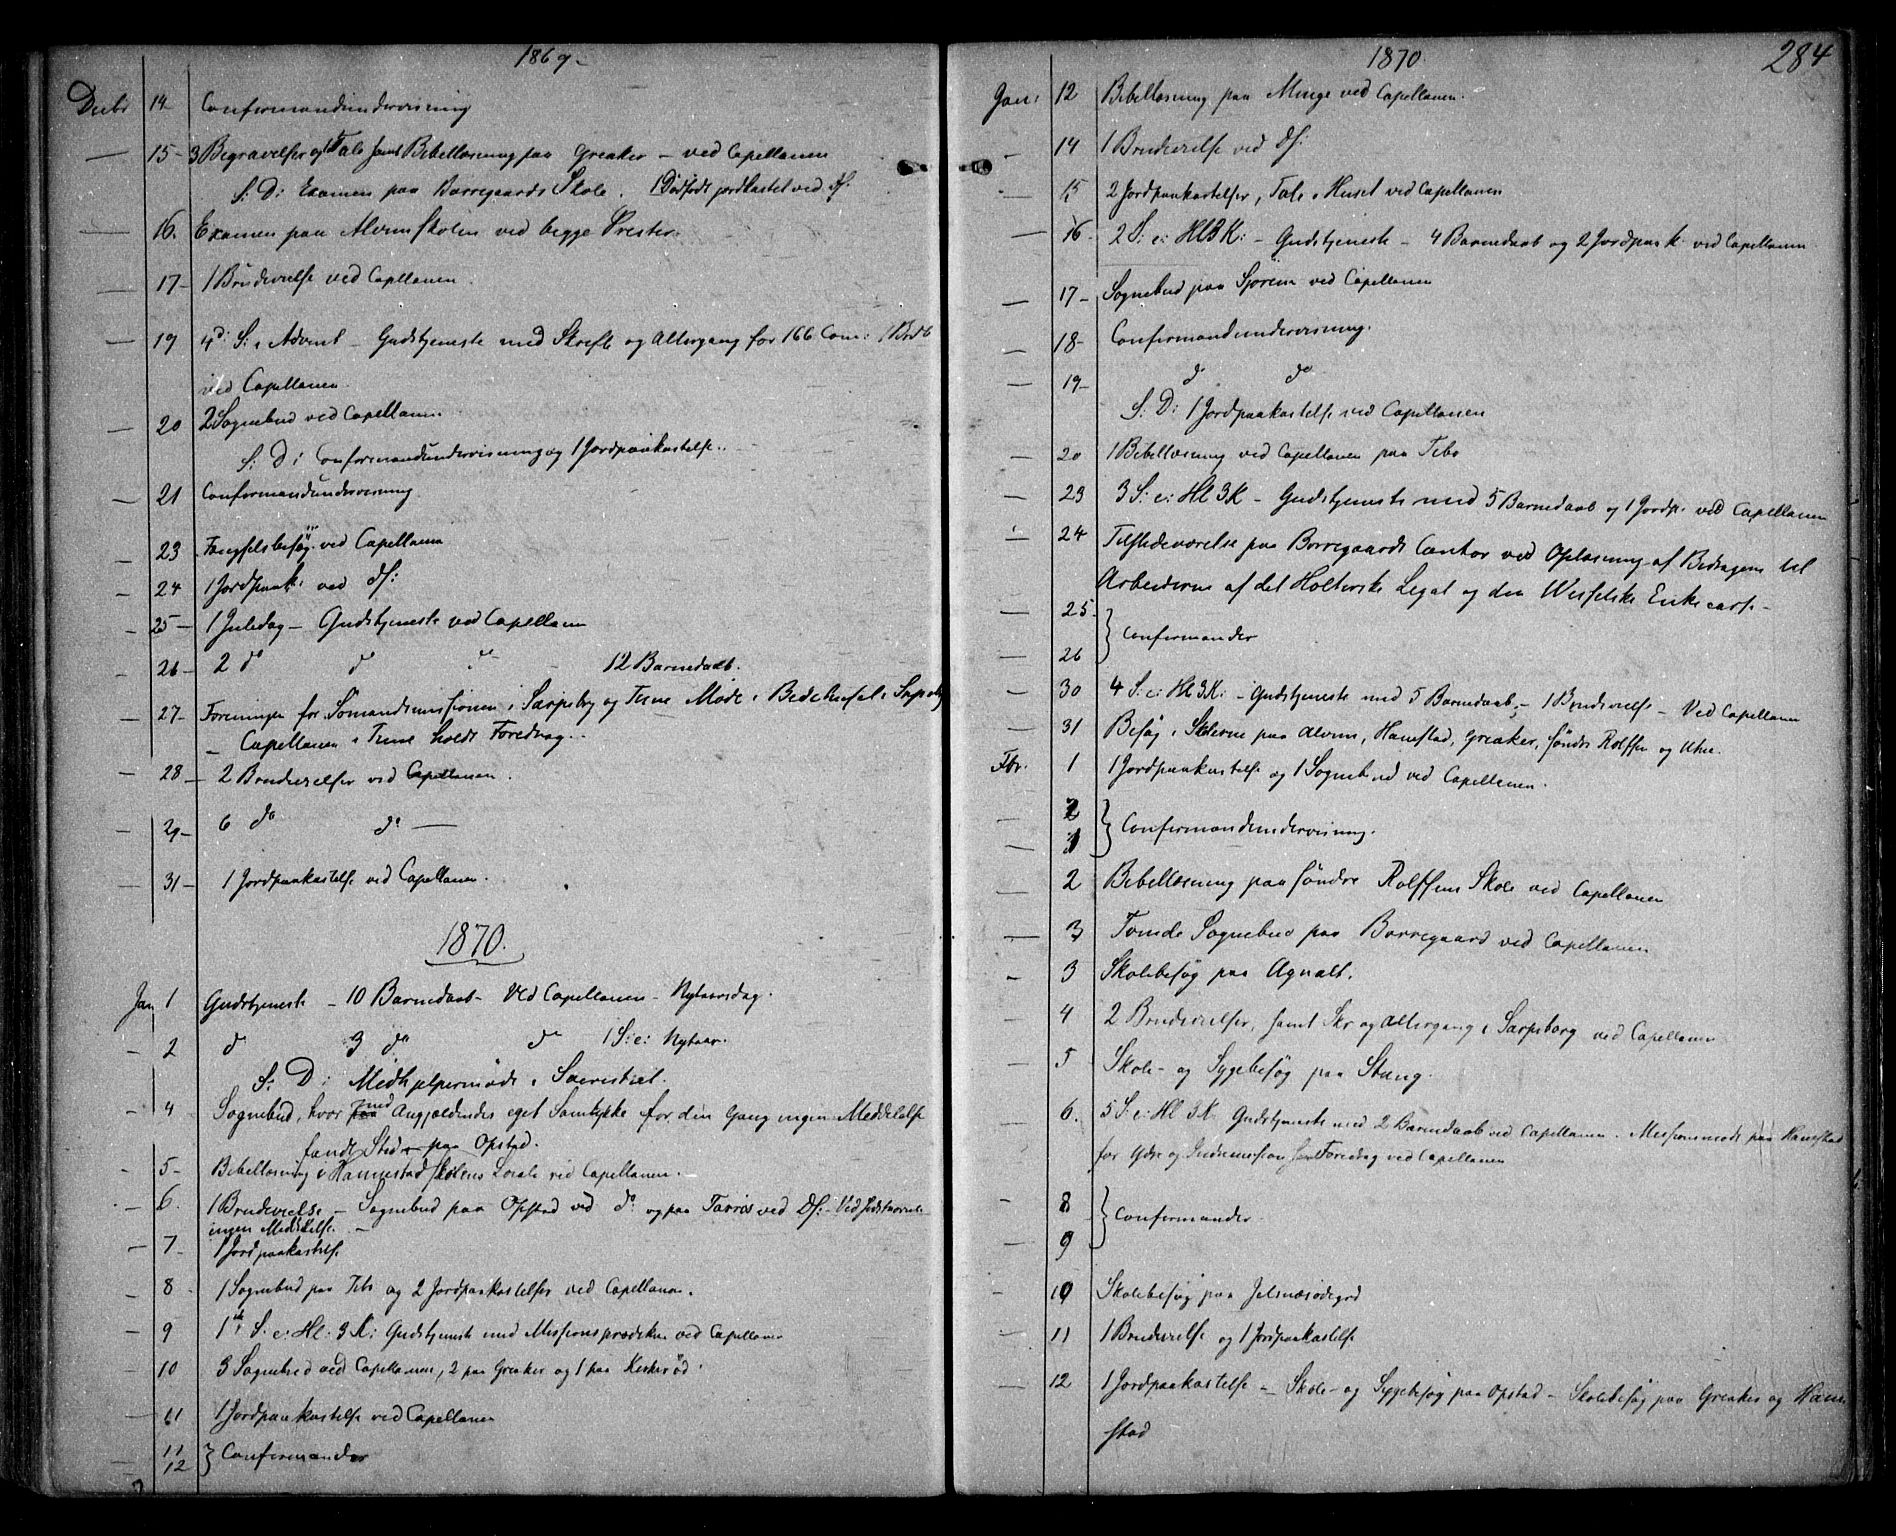 1869
Decbr 14 Confirmandundervisning
15 - 3 Begravelser og 1 Tale samt Bibellæsning paa Greaker - ved Capellanen
S: D: Examen paa Borregaards Skole. 1 Dødfødt jordkastet ved Ds:
16. Examen paa Alvimskolen ved begge Præster.
17 - 1 Brudevielse ved Capllanen.
19 4d: S: i Advent - Gudstjeneste med Skrift og Altergang for 166 Com: 1 Brdb
ved Capellanen.
20 2 Sognebud ved Capellanen
S: D: Confirmandundervisning og 1 Jordpaakastelse.
21 Confirmandundervisning
23 Fængselsbesøg ved Capellanen
24 1 Jordpaak: ved Ds:
25 - 1 Juledag - Gudstjeneste ved Capellanen
26 - 2 do do do 12 Barnedaab.
27 - Foreningen for Sømandsmissionen i Sarpsborg og Tune Møde i Bedehuset i Sarpsborg
- Capellanen i Tune holdt Foredrag.
28 - 2 Brudevielser ved Capellanen.
29 - 6 do do -
31 - 1 Jordpaakastelse ved Capellanen.
1870.
Jan 1 Gudstjeneste - 10 Barnedaab - Ved Capellanen - Nytaarsdag.
2 do 3 do do 1 S: e: Nytaar.
S: D: Medhjelpermøde i Sacristiet.
4 Sognebud, hvor med Angjældendes eget Samtykke for den Gang ingen Meddelelse
fandt Sted - paa Opstad.
5 - Bibellæsning i Hannestad Skolens Locale ved Capellanen.
6. 1 Brudevielse - Sognebud paa Opstad ved do og paa ved Ds: - Ved Sidstnævnte
ingen Meddelelse. -
7 - 1 Jordpaakastelse
8 - 1 Sognebud paa Tebo og 2 Jordpaakastelser ved Capellanen.
9 1ste S: e: Hl: 3 K: Gudstjeneste med Missionsprædiken ved Capellanen
10 3 Sognebud ved Capellanen, 2 paa Greaker og 1 paa
11 1 Jordpaakastelse ved Capellanen
11
12 } Confirmander
1870. 284
Jan: 12 Bibellæsning paa Minge ved Capellanen.
14 1 Brudevielse ved Ds:
15 2 Jordpaakastelser, Tale i Huset ved Capellanen
16 - 2 S: e: Hl3K: - Gudstjeneste - 4 Barnedaab og 2 Jordpaak: ved Capellanen
17 - Sognebud paa ved Capellanen
18 - Confirmandundervisning.
19 - do do
S: D: 1 Jordpaakastelse ved Capellanen
20 1 Bibellæsning ved Capellanen paa Tebo
23 3 S: e: Hl 3K - Gudstjeneste med 5 Barnedaab og 1 Jordp: ved Capellanen
24 Tilstedeværelse paa Borregaards Contor ved Oplæsning af Bidragene til
Arbeiderne af det Holterske Legat og den Wesselske Enkecasse -
25 -
26 } Confirmander
30 4 S: e: Hl 3K: - Gudstjeneste med 5 Barnedaab - 1 Brudevielse - Ved Capellanen
31 Besøg i Skolerne paa Alvim, Hanestad, Greaker, Søndre Rolfsøe og Utne.
Fbr. 1 1 Jordpaakastelse og 1 Sognebud ved Capellanen.
2
1 } Confirmandundervisning.
2 Bibellæsning paa Søndre Rolfsøens Skole ved Capellanen
3 Tvende Sognebud paa Borregaard ved Capellanen
3 Skolebesøg paa Agnalt.
4 2 Brudevielser, samt Skr og Altergang i Sarpsborg ved Capellanen
5 Skole - og Sygebesøg paa Stang.
6. 5 S: e: Hl 3K. Gudstjeneste med 2 Barnedaab ved Capellanen. Missionsmøde paa Hanestad
for Ydre og Indremission samt Foredrag ved Capellanen
8
9 } Confirmander.
10 Skolebesøg paa Jelsnæsødegrd
11 1 Brudevielse og 1 Jordpaakastelse
12 1 Jordpaakastelse - Skole- og Sygebesøg paa Opstad - Skolebesøg paa Greaker og Hane-
stad